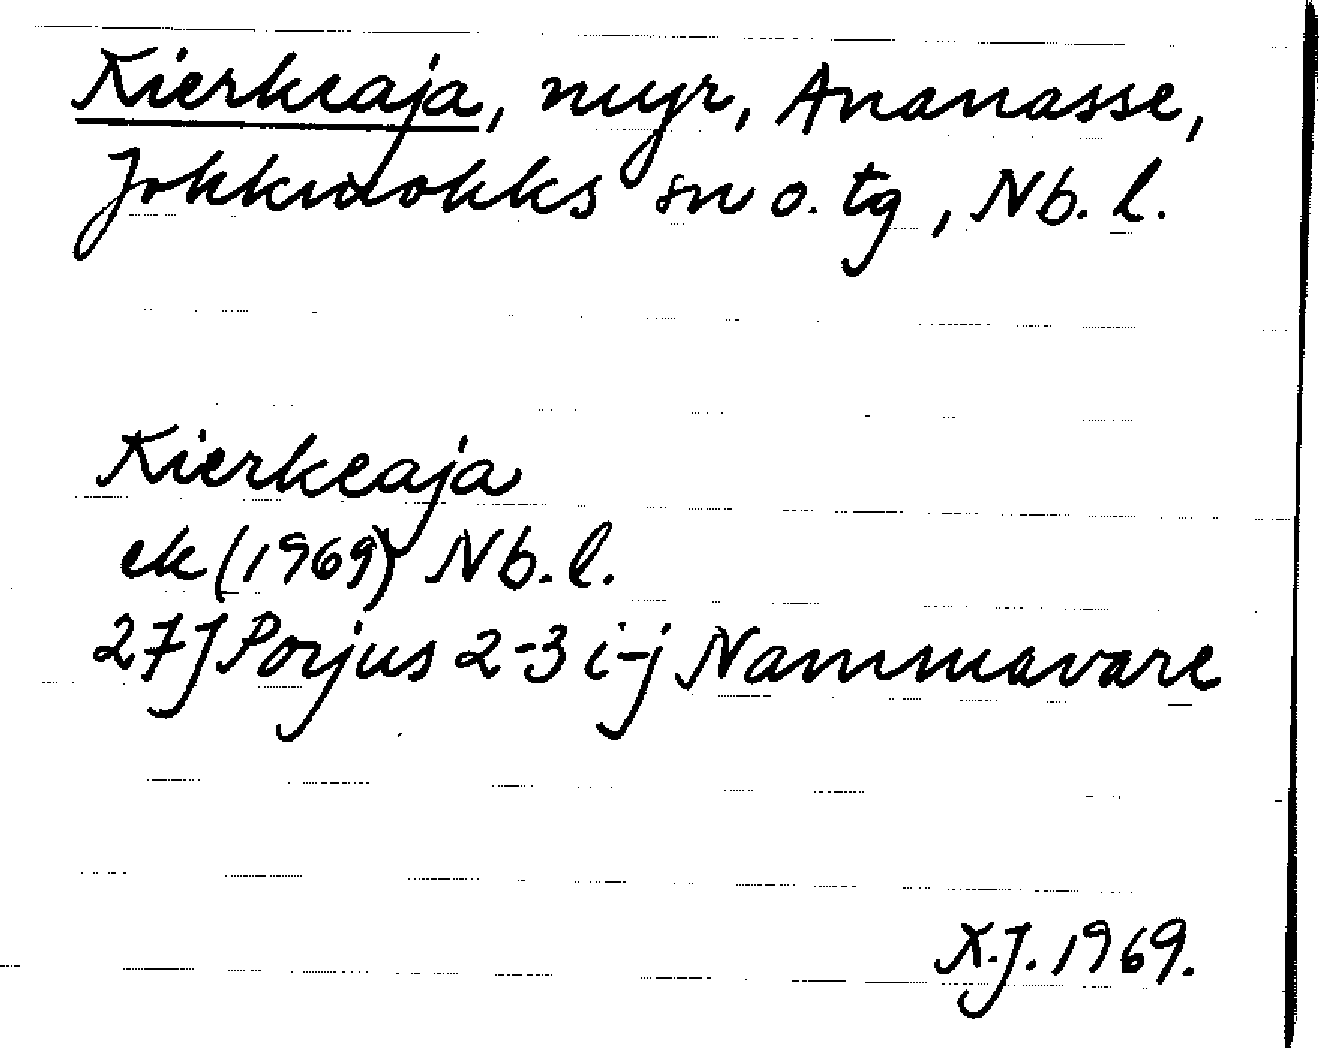 Kierkeaja, myr, Ananasse,
Jokkmokks sn o. tg, Nb. l.
Kierkeaja
ek (1969) Nb. l.
27J Porjus 2-3 i-j Nammavare
X.J. 1969.